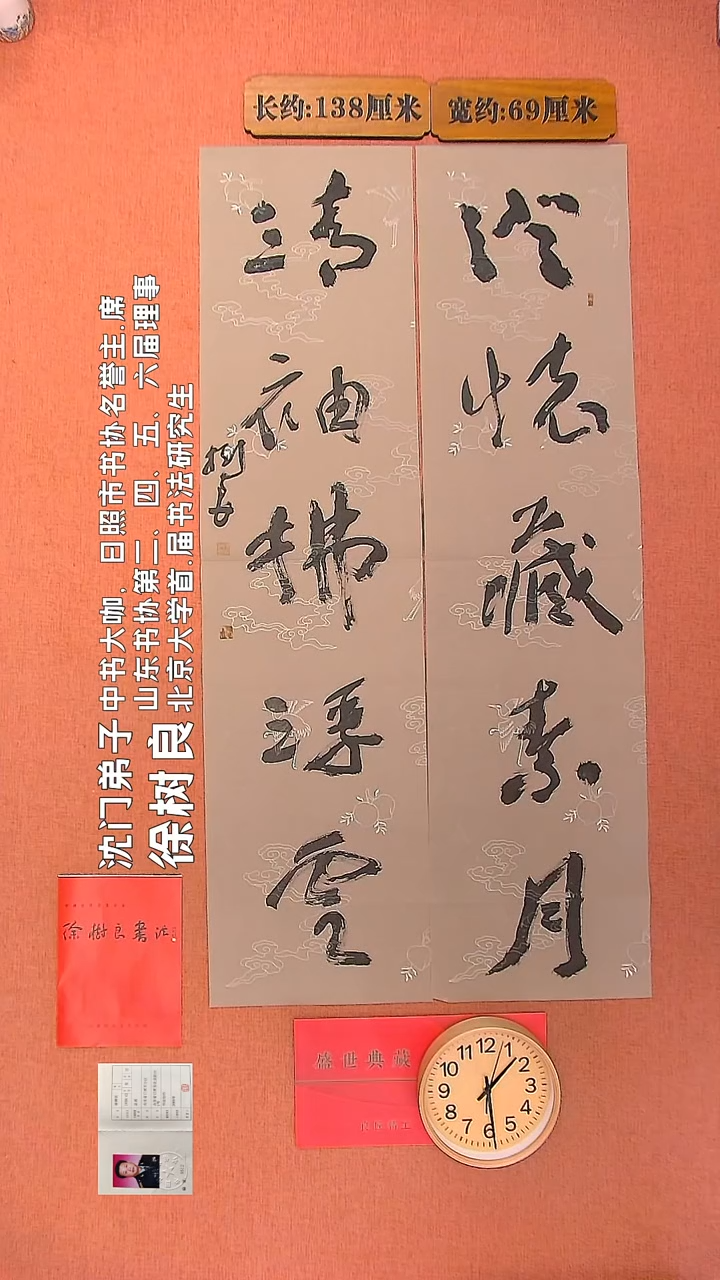 长约:138厘米
宽约:69厘米
澄怀藏素月
清袖拂浮云
树良
沈门弟子 中书大咖,日照市书协名誉主.席
山东书协第三、四、五、六届理事
徐树良 北京大学首.届书法研究生
徐樹良書法
盛世典藏
12
1
2
3
4
5
6
7
8
9
10
11